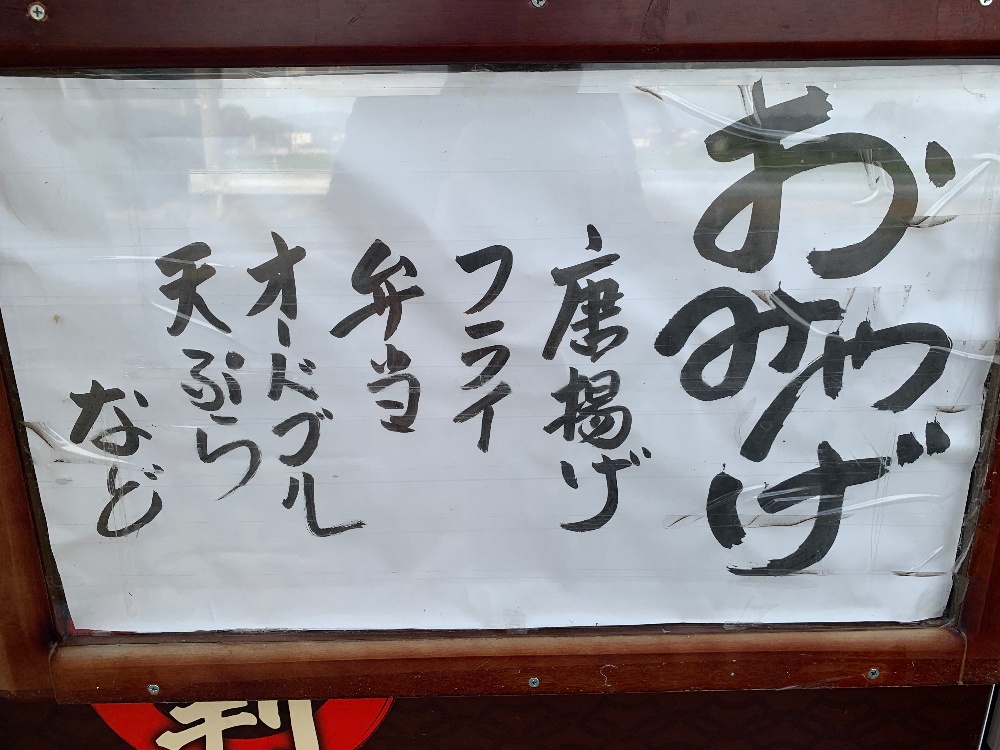 おみやげ
唐揚げ
フライ
弁当
オードブル
天ぷら
など